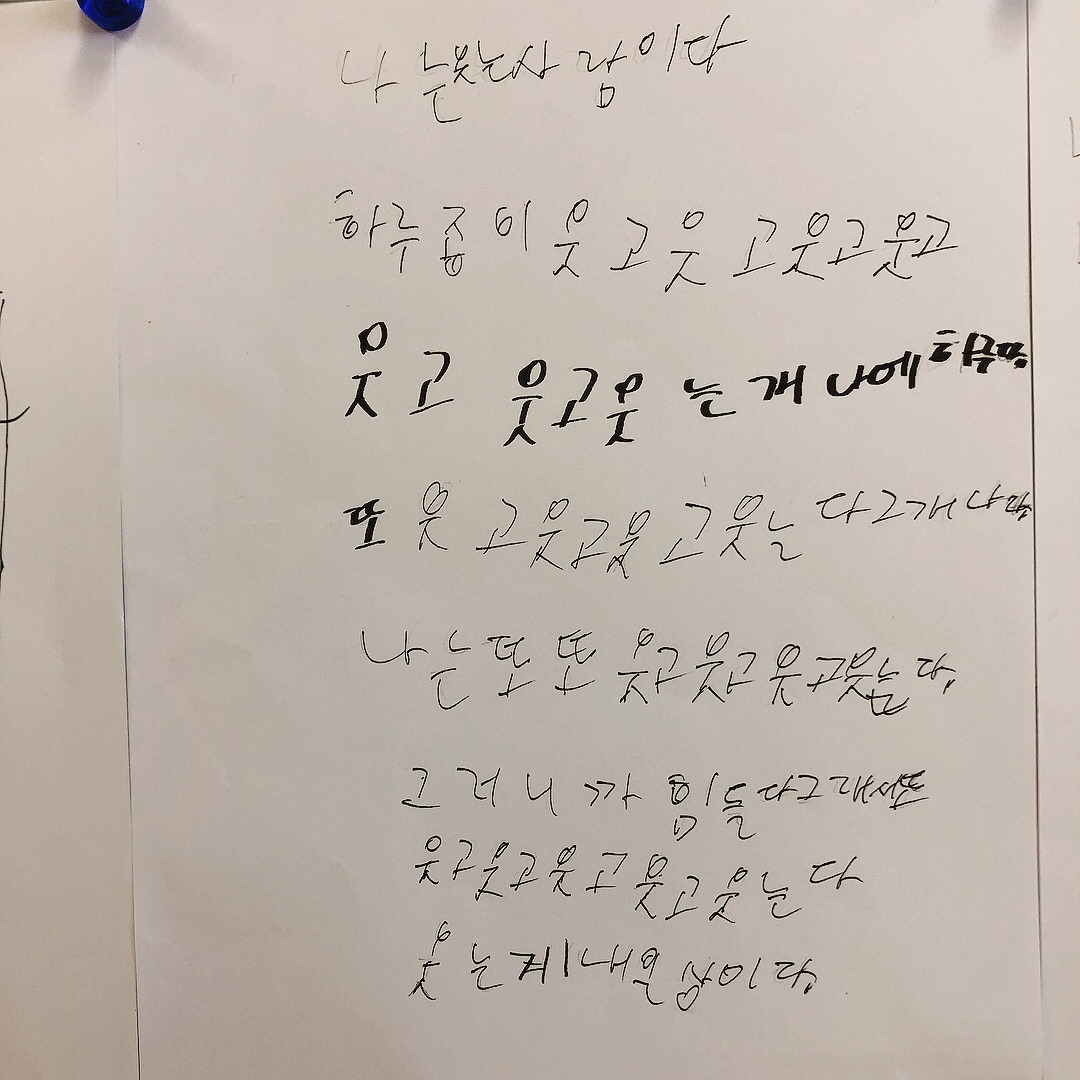 나는웃는사람이다
하루종이 웃고웃고웃고웃고
웃고 웃고웃는개 나에 하루다.
또 웃고웃고웃고웃는다그개나다.
나는또또 웃고웃고웃고웃는다.
그러니까 힘들다그래서또
웃고웃고웃고웃고웃는다
웃는게내일상이다.